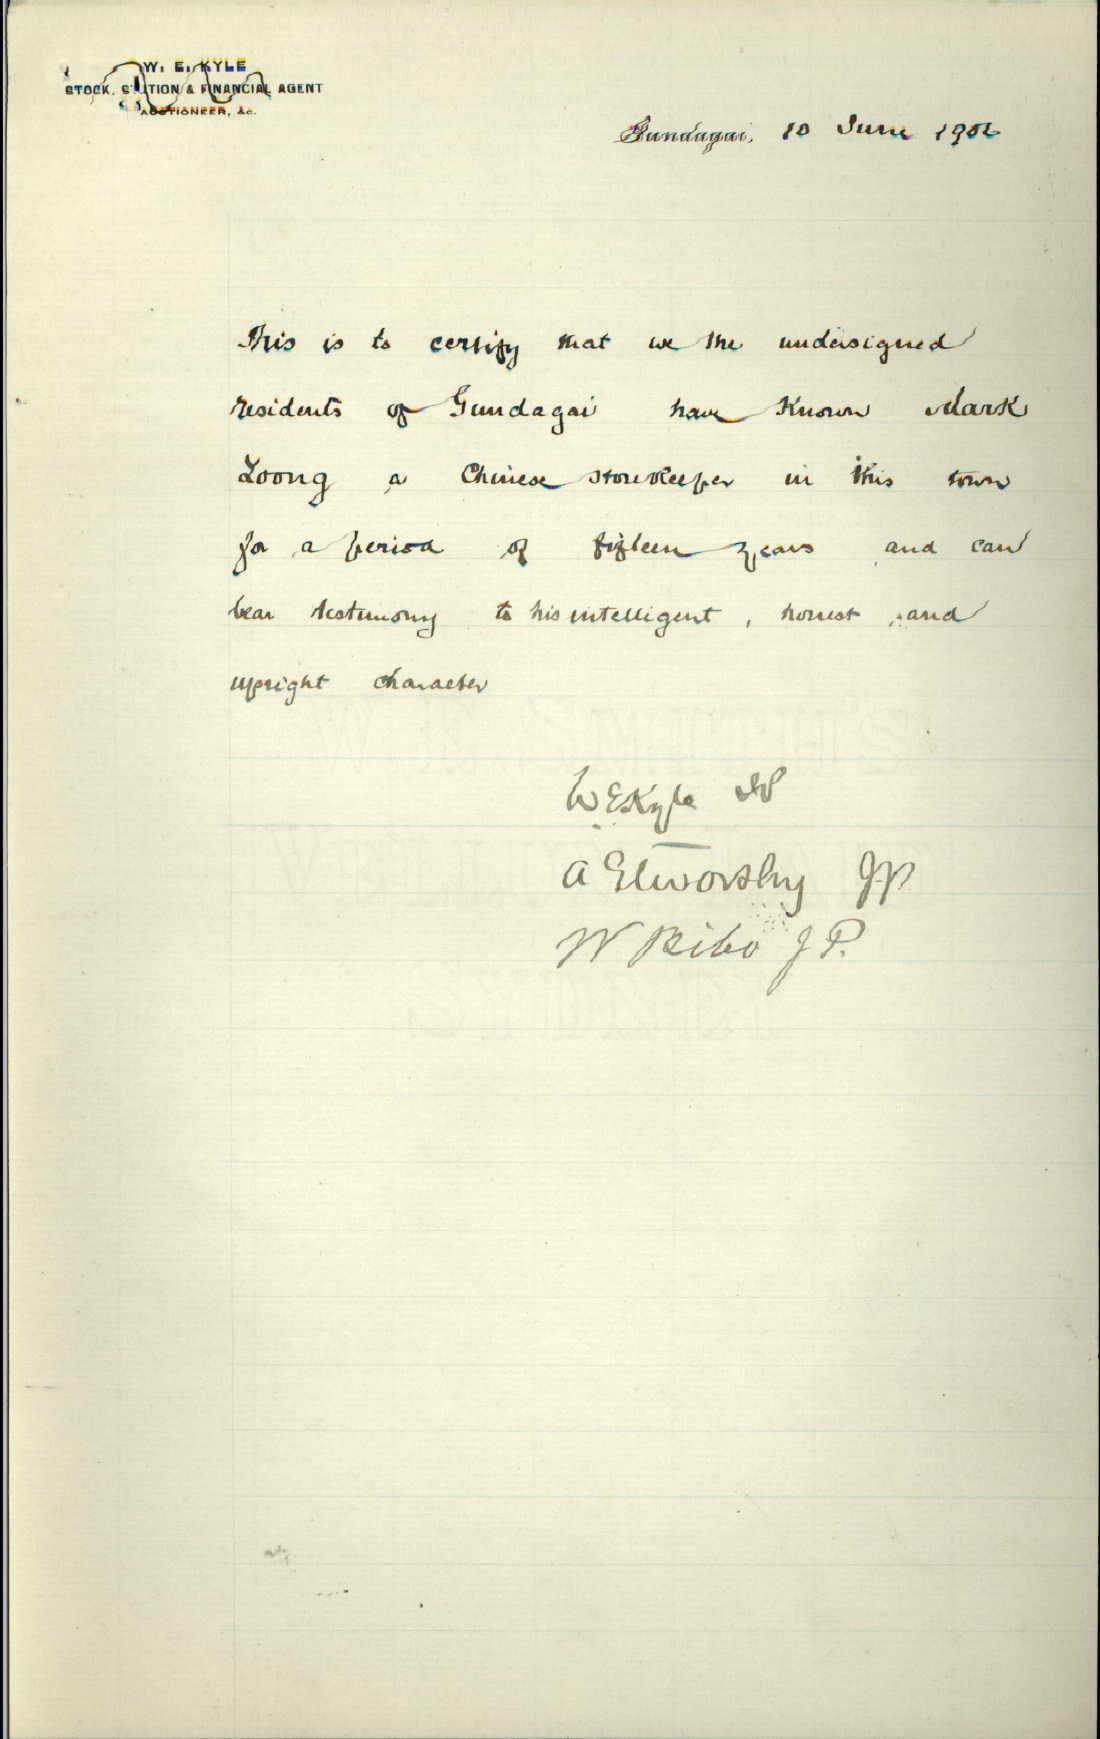 W. E. KYLE
STOCK, STATION & FINANCIAL AGENT
AUCTIONEER, &c.
Gundagai, 10 June 190
This is to certify that we the undersigned
residents of Gundagai have Known Mark
Loong a Chinese storekeeper in this town
for a period of fifteen years and can
bear testimony to his intelligent, honest and
upright character
W E Kyle JP
A Elworthy JP
W Bibo J P.
W. E. SMITH'S
VELLUM
SYDNEY